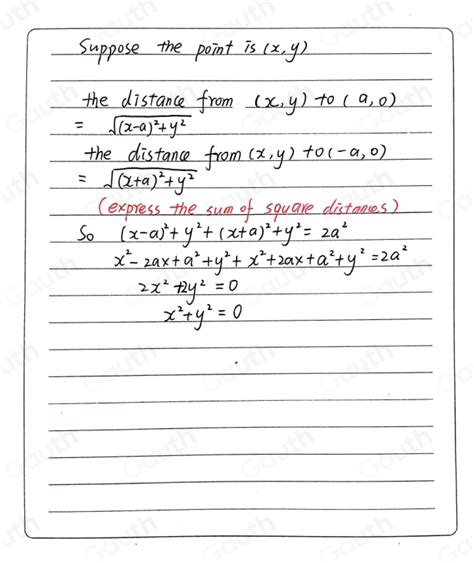 Suppose the point is (x,y)
the distance from (x,y) to (a,0)
= √(x-a)²+y²
the distance from (x,y) to (-a,0)
= √(x+a)²+y²
(express the sum of square distances)
So (x-a)²+y²+(x+a)²+y²= 2a²
x²-2ax+a²+y²+x²+2ax+a²+y²=2a²
2x²+2y²=0
x²+y²=0